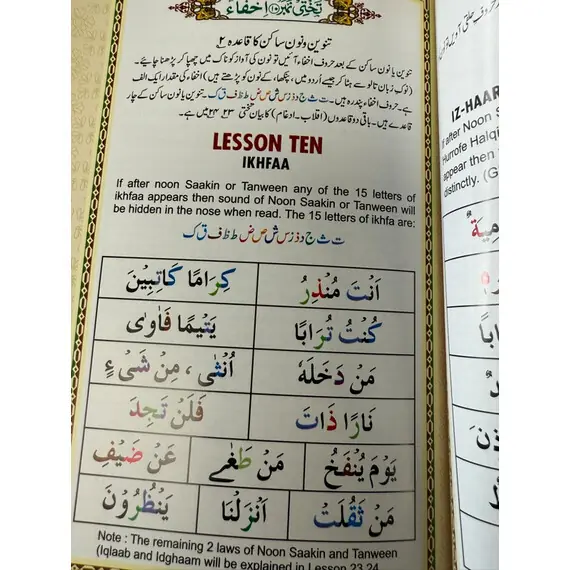 تختی نمبر (۱۰) اخفاء
تنوین و نون ساکن کا قاعدہ ۲
تنوین یا نون ساکن کے بعد حروف اخفاء آئیں تو نون کی آواز کو ناک میں چھپا کر پڑھنا چاہئے۔
(نوک زبان تالو سے ہٹا کر جیسے اُردو میں، پنکھا، کے نون کو پڑھتے ہیں) اخفاء کی مقدار ایک الف
ہے۔ حروف اخفاء پندرہ ہیں۔ ت ث ج د ذ ز س ش ص ض ط ظ ف ق ک۔ تنوین یا نون ساکن کے چار
قاعدے ہیں۔ باقی دو قاعدوں (اقلاب۔ ادغام) کا بیان تختی ۲۳، ۲۴ میں ہے۔
LESSON TEN
IKHFAA
If after noon Saakin or Tanween any of the 15 letters of
ikhfaa appears then sound of Noon Saakin or Tanween will
be hidden in the nose when read. The 15 letters of ikhfa are:
ت ث ج د ذ ز س ش ص ض ط ظ ف ق ک
اَنْتَ مُنْذِرُ كِرَامًا كَاتِبِيْنَ
كُنْتُ تُرَابًا يَتِيْمًا فَاٰوٰى
مَنْ دَخَلَهٗ اُنْثٰى ، مِنْ شَىْ ءٍ
نَارًا ذَاتَ فَلَنْ تَجِدَ
يَوْمَ يُنْفَخُ مَنْ طَغٰے عَنْ ضَيْفِ
مَنْ ثَقُلَتْ اَنْزَلْنَا يَنْظُرُوْنَ
Note : The remaining 2 laws of Noon Saakin and Tanween
(Iqlaab and Idghaam will be explained in Lesson 23,24
IZ-HAAR
If after Noon S
Hurrofe Halqi
appear then
distinctly. (G